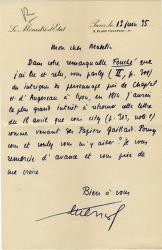 Le Ministre d'Etat
Paris, le 13 juin 35
Mon cher Madelin,
Dans votre remarquable Fouché que
j'ai lu et relu, vous parlez (II, p. 300)
du intrigues du personnage pris de
et d'Augereau à Lyon, en 1814. J'aurais
le plus grand intérêt à retrouver cette lettre
du 18 avril que vous citez (p. 300, note)
comme venant des Papiers Gaillard.
et voulez vous m'y aider? Je vous
d'avance et vous prie de
me croire
Bien à vous